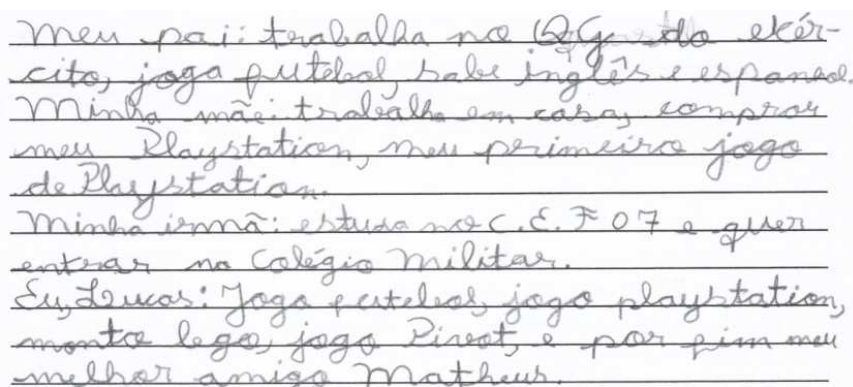 Meu pai: trabalha no QG do exér-
cito, joga futebol, sabe inglês e espanol.
Minha mãe: trabalha em casa, comprar
meu Playstation, meu perimeiro jogo
de Playstation.
Minha irmã: estuda no C.E.F 07 e quer
entrar no Colégio Militar.
Eu, Lucas: Jogo futebol, jogo playstation,
monto lego, jogo Pivot, e por fim meu
melhor amigo Matheus.